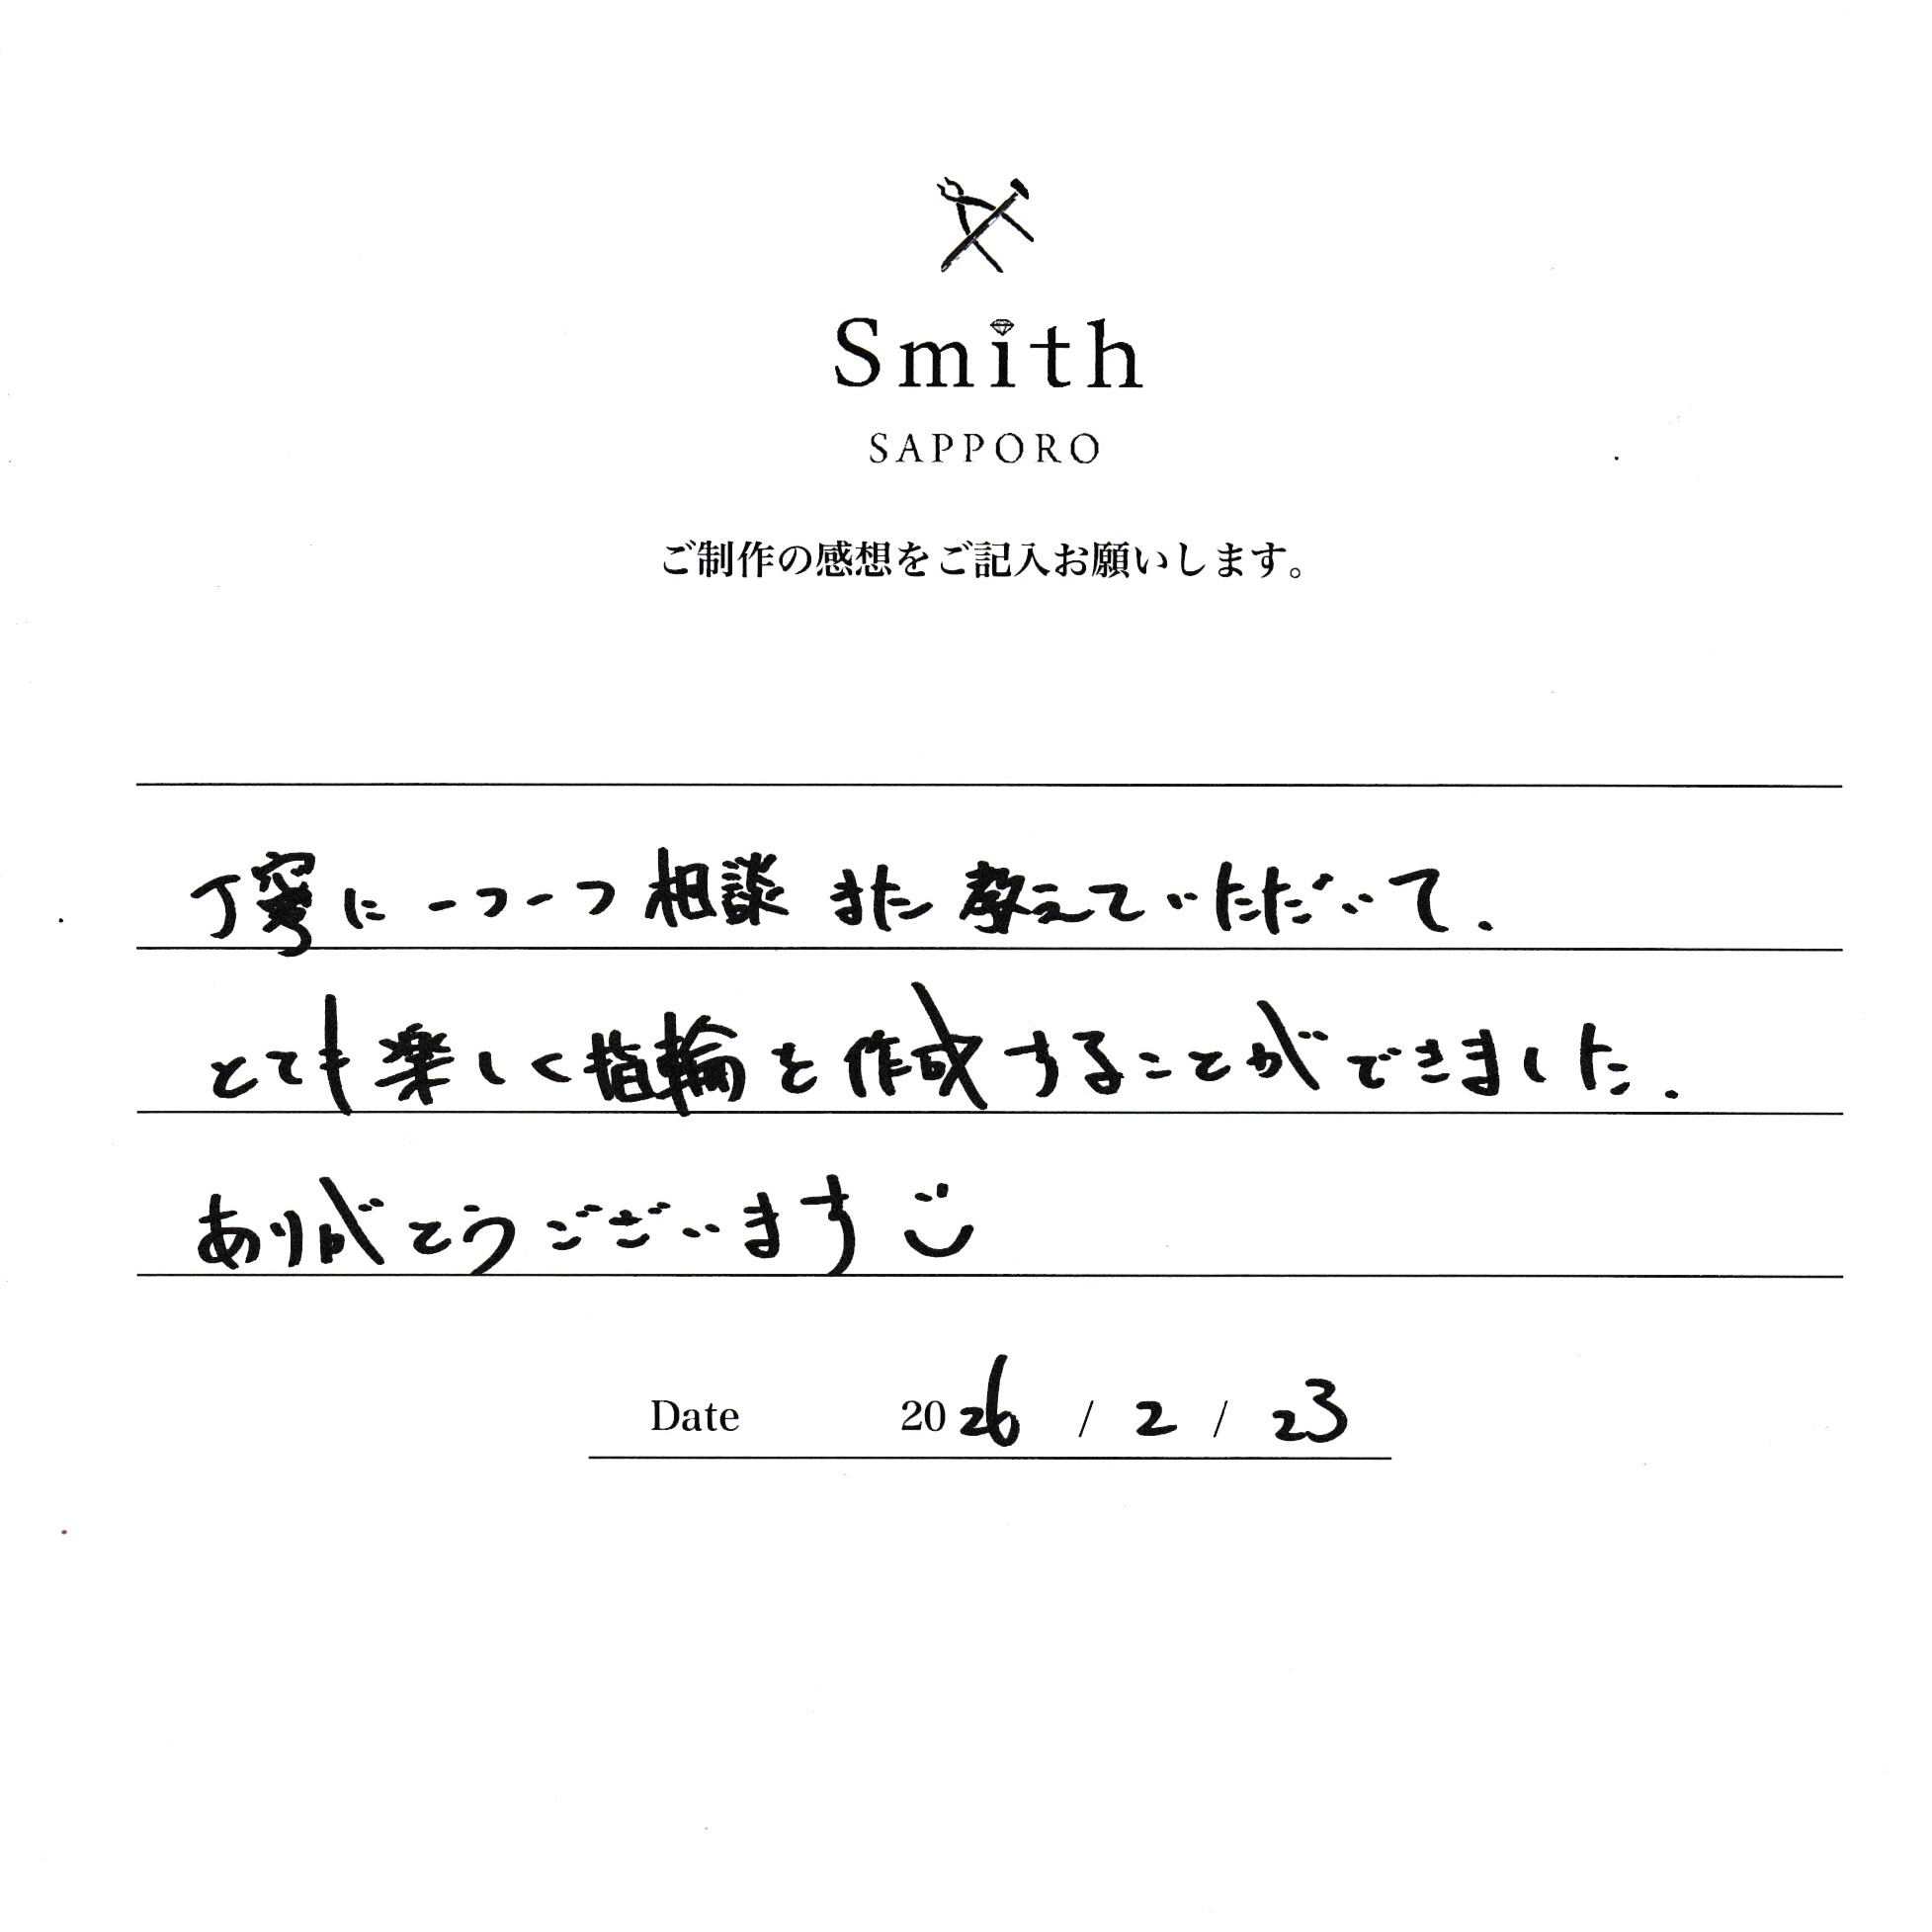 Smith
SAPPORO
ご制作の感想をご記入お願いします。
丁寧に一つ一つ相談また教えていただいて、
とても楽しく指輪を作成することができました.
ありがとうございます
Date 2026 / 2 / 23